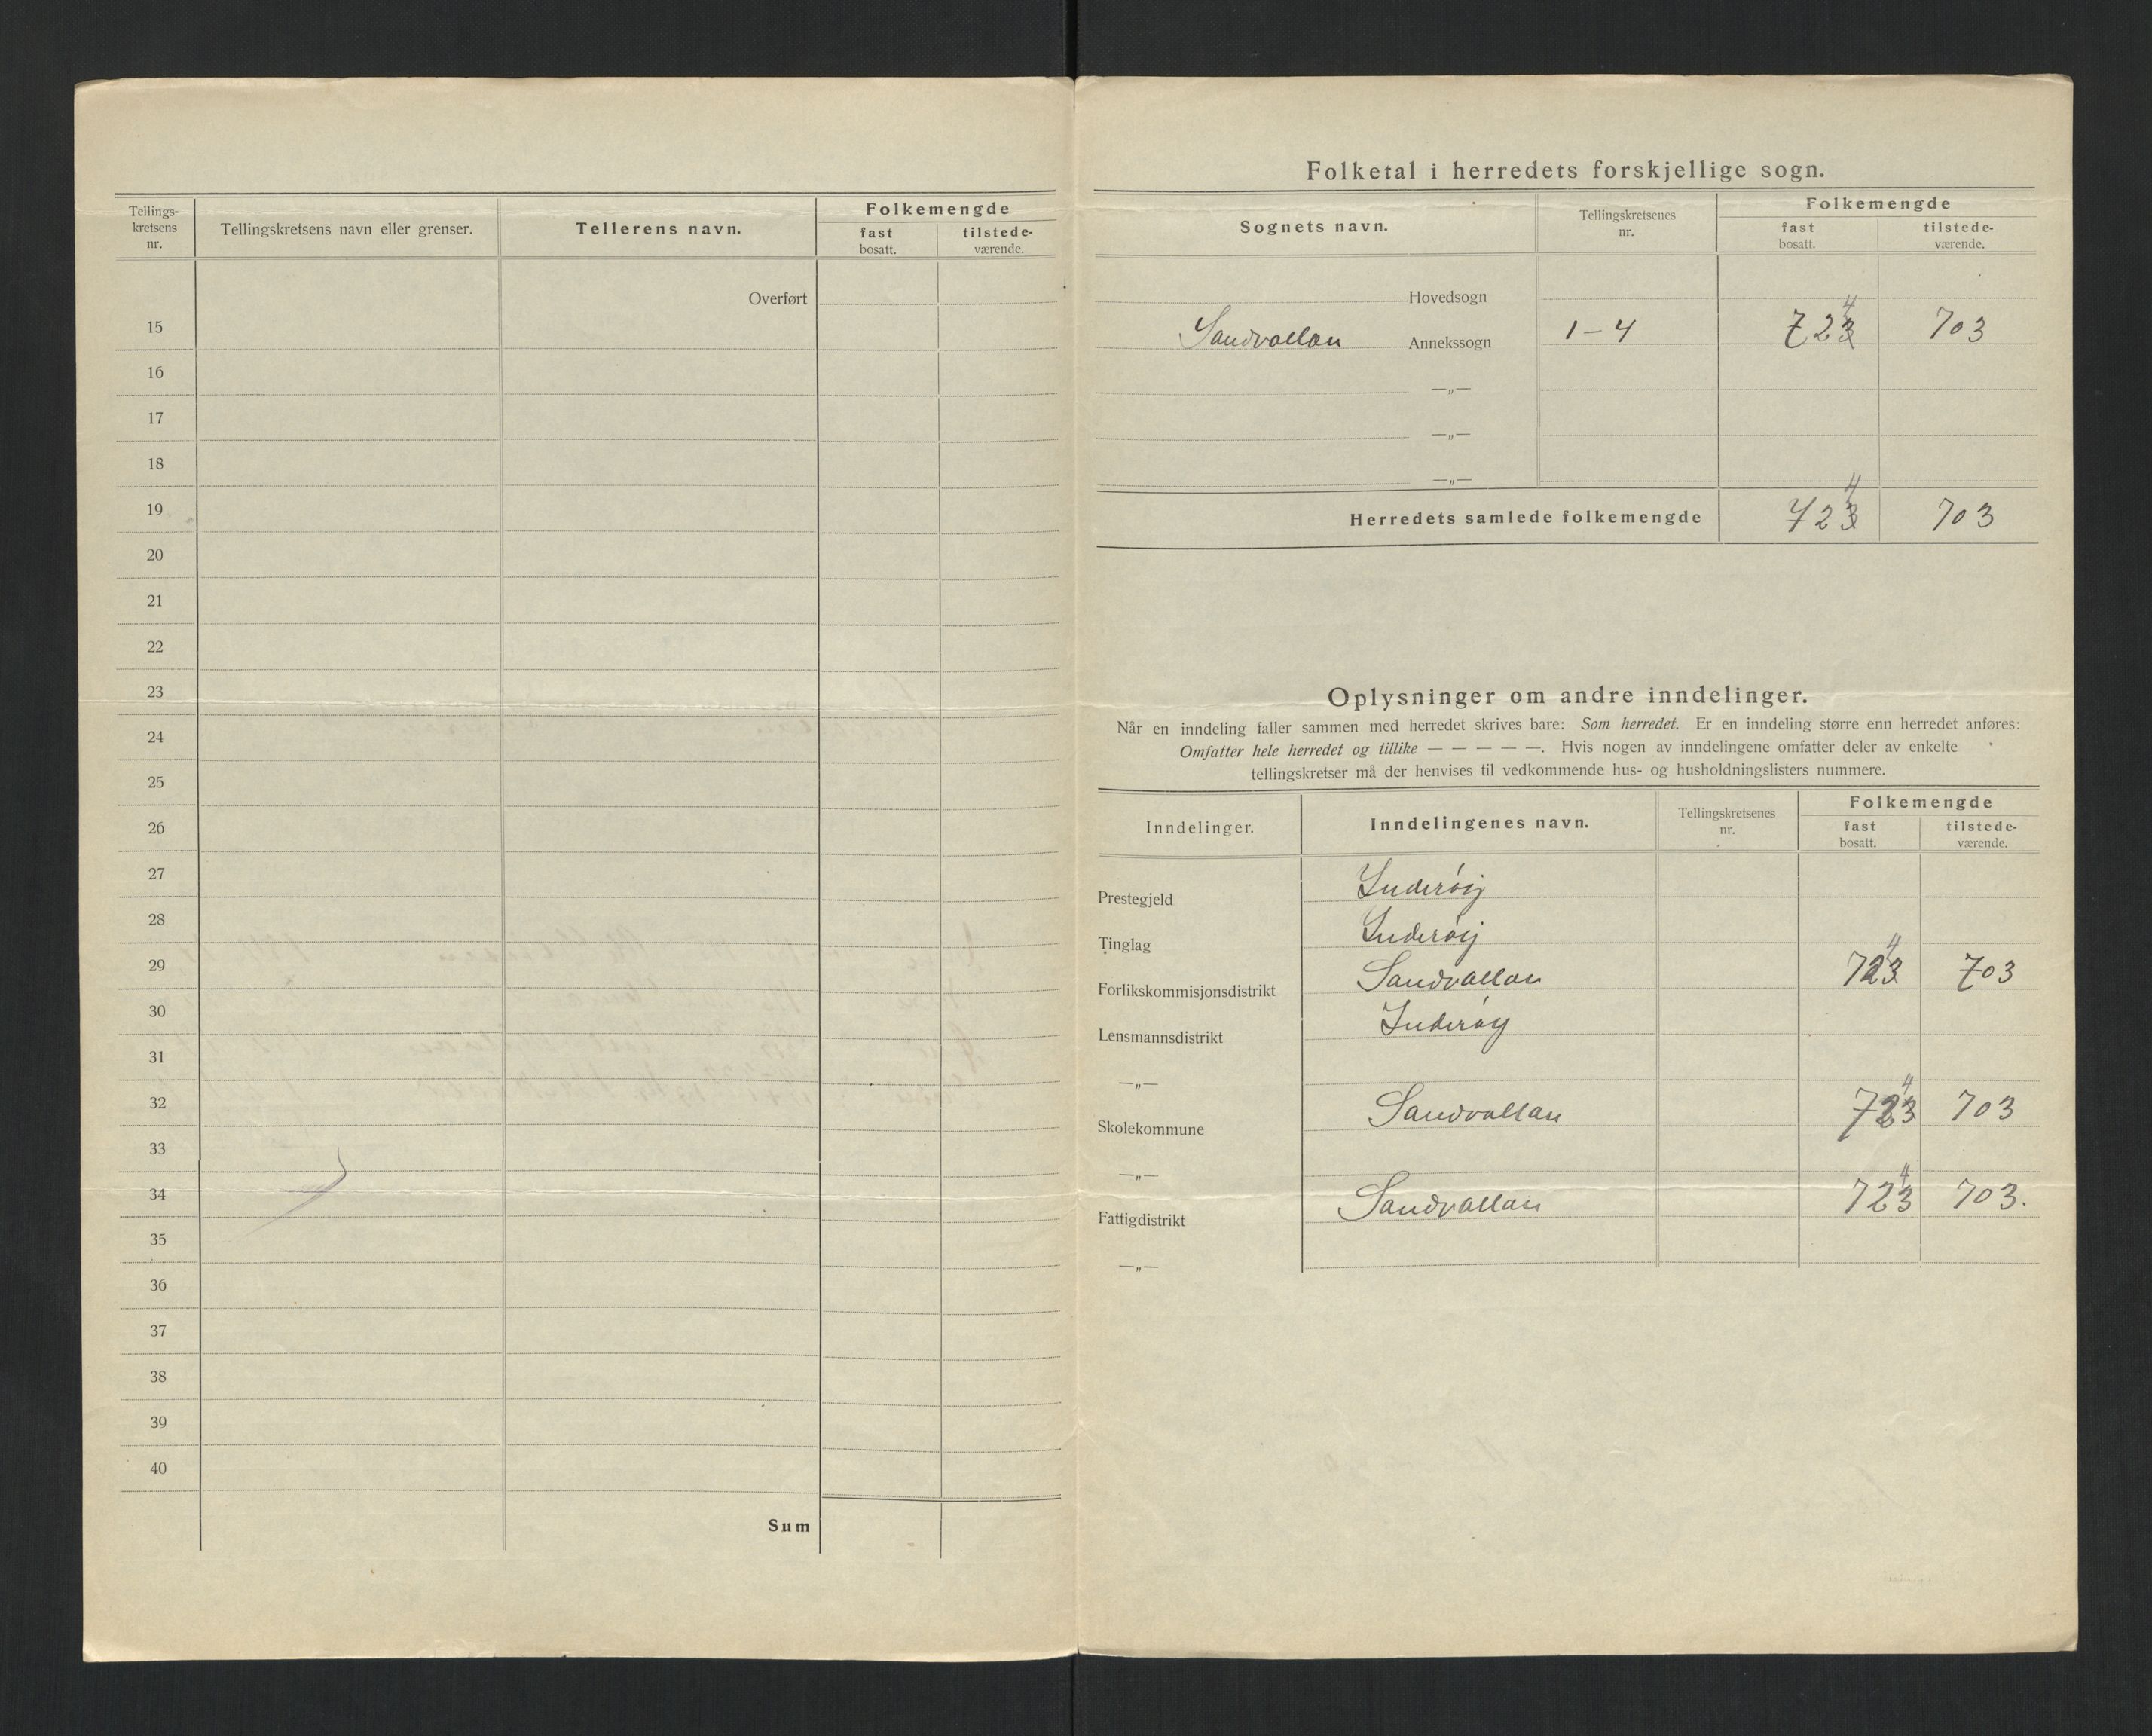 Tellings-
kretsens
nr.
Tellingskretsens navn eller grenser.
Tellerens navn.
Folkemengde
fast
bosatt.
tilstede-
værende.
Overført
15
16
17
18
19
20
21
22
23
24
25
26
27
28
29
30
31
32
33
34
35
36
37
38
39
40
Sum
Folketal i herredets forskjellige sogn.
Sognets navn.
Tellingskretsenes
nr.
Folkemengde
fast
bosatt.
tilstede-
værende.
Hovedsogn
4
Sandvollan Annekssogn 1-4 723 703
—„—
—„—
—„—
4
Herredets samlede folkemengde 723 703
Oplysninger om andre inndelinger.
Når en inndeling faller sammen med herredet skrives bare: Som herredet. Er en inndeling større enn herredet anføres:
Omfatter hele herredet og tillike — — — — —. Hvis nogen av inndelingene omfatter deler av enkelte
tellingskretser må der henvises til vedkommende hus- og husholdningslisters nummere.
Inndelinger.
Inndelingenes navn.
Tellingskretsenes
nr.
Folkemengde
fast
bosatt.
tilstede-
værende.
Prestegjeld Inderøy
Tinglag Inderøy
4
Forlikskommisjonsdistrikt Sandvollan 723 703
Lensmannsdistrikt Inderøy
—„—
4
Skolekommune Sandvollan 723 703
—„—
4
Fattigdistrikt Sandvollan 723 703.
—„—